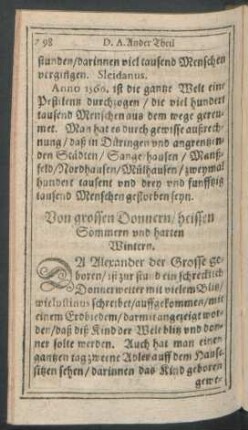 98 D. A. Ander Theil
stunden/darinnen viel tausend Menschen
vergiengen. Sleidanus.
Anno 1360. ist die gantze Welt eine
Pestilentz durchzogen / die viel hundert
tausend Menschen aus dem wege gereu-
met. Man hat es durch gewisse außrech-
nung / daß in Düringen und angrentzin-
den Städten / Sangerhausen / Manß-
feld/Nordhausen/Mülhausen/zweymal
hundert tausent und drey und funfftzig
tausend Menschen gestorben seyn.
Von grossen Donnern/heissen
Sömmern und harten
Wintern.
DA Alexander der Grosse ge-
boren / ist zur stunde ein schrecklich
Donnerwetter mit vielem Blitz/
wie Justinus schreibet/auffgekommen/mit
einem Erdbiedem/darmit angezeigt wor-
den/daß diß Kind der Welt blitz und don-
ner solte werden. Auch hat man einen
gantzen tag zweene Adler auff dem Hause
sitzen sehen / darinnen das Kind geboren
gewe-